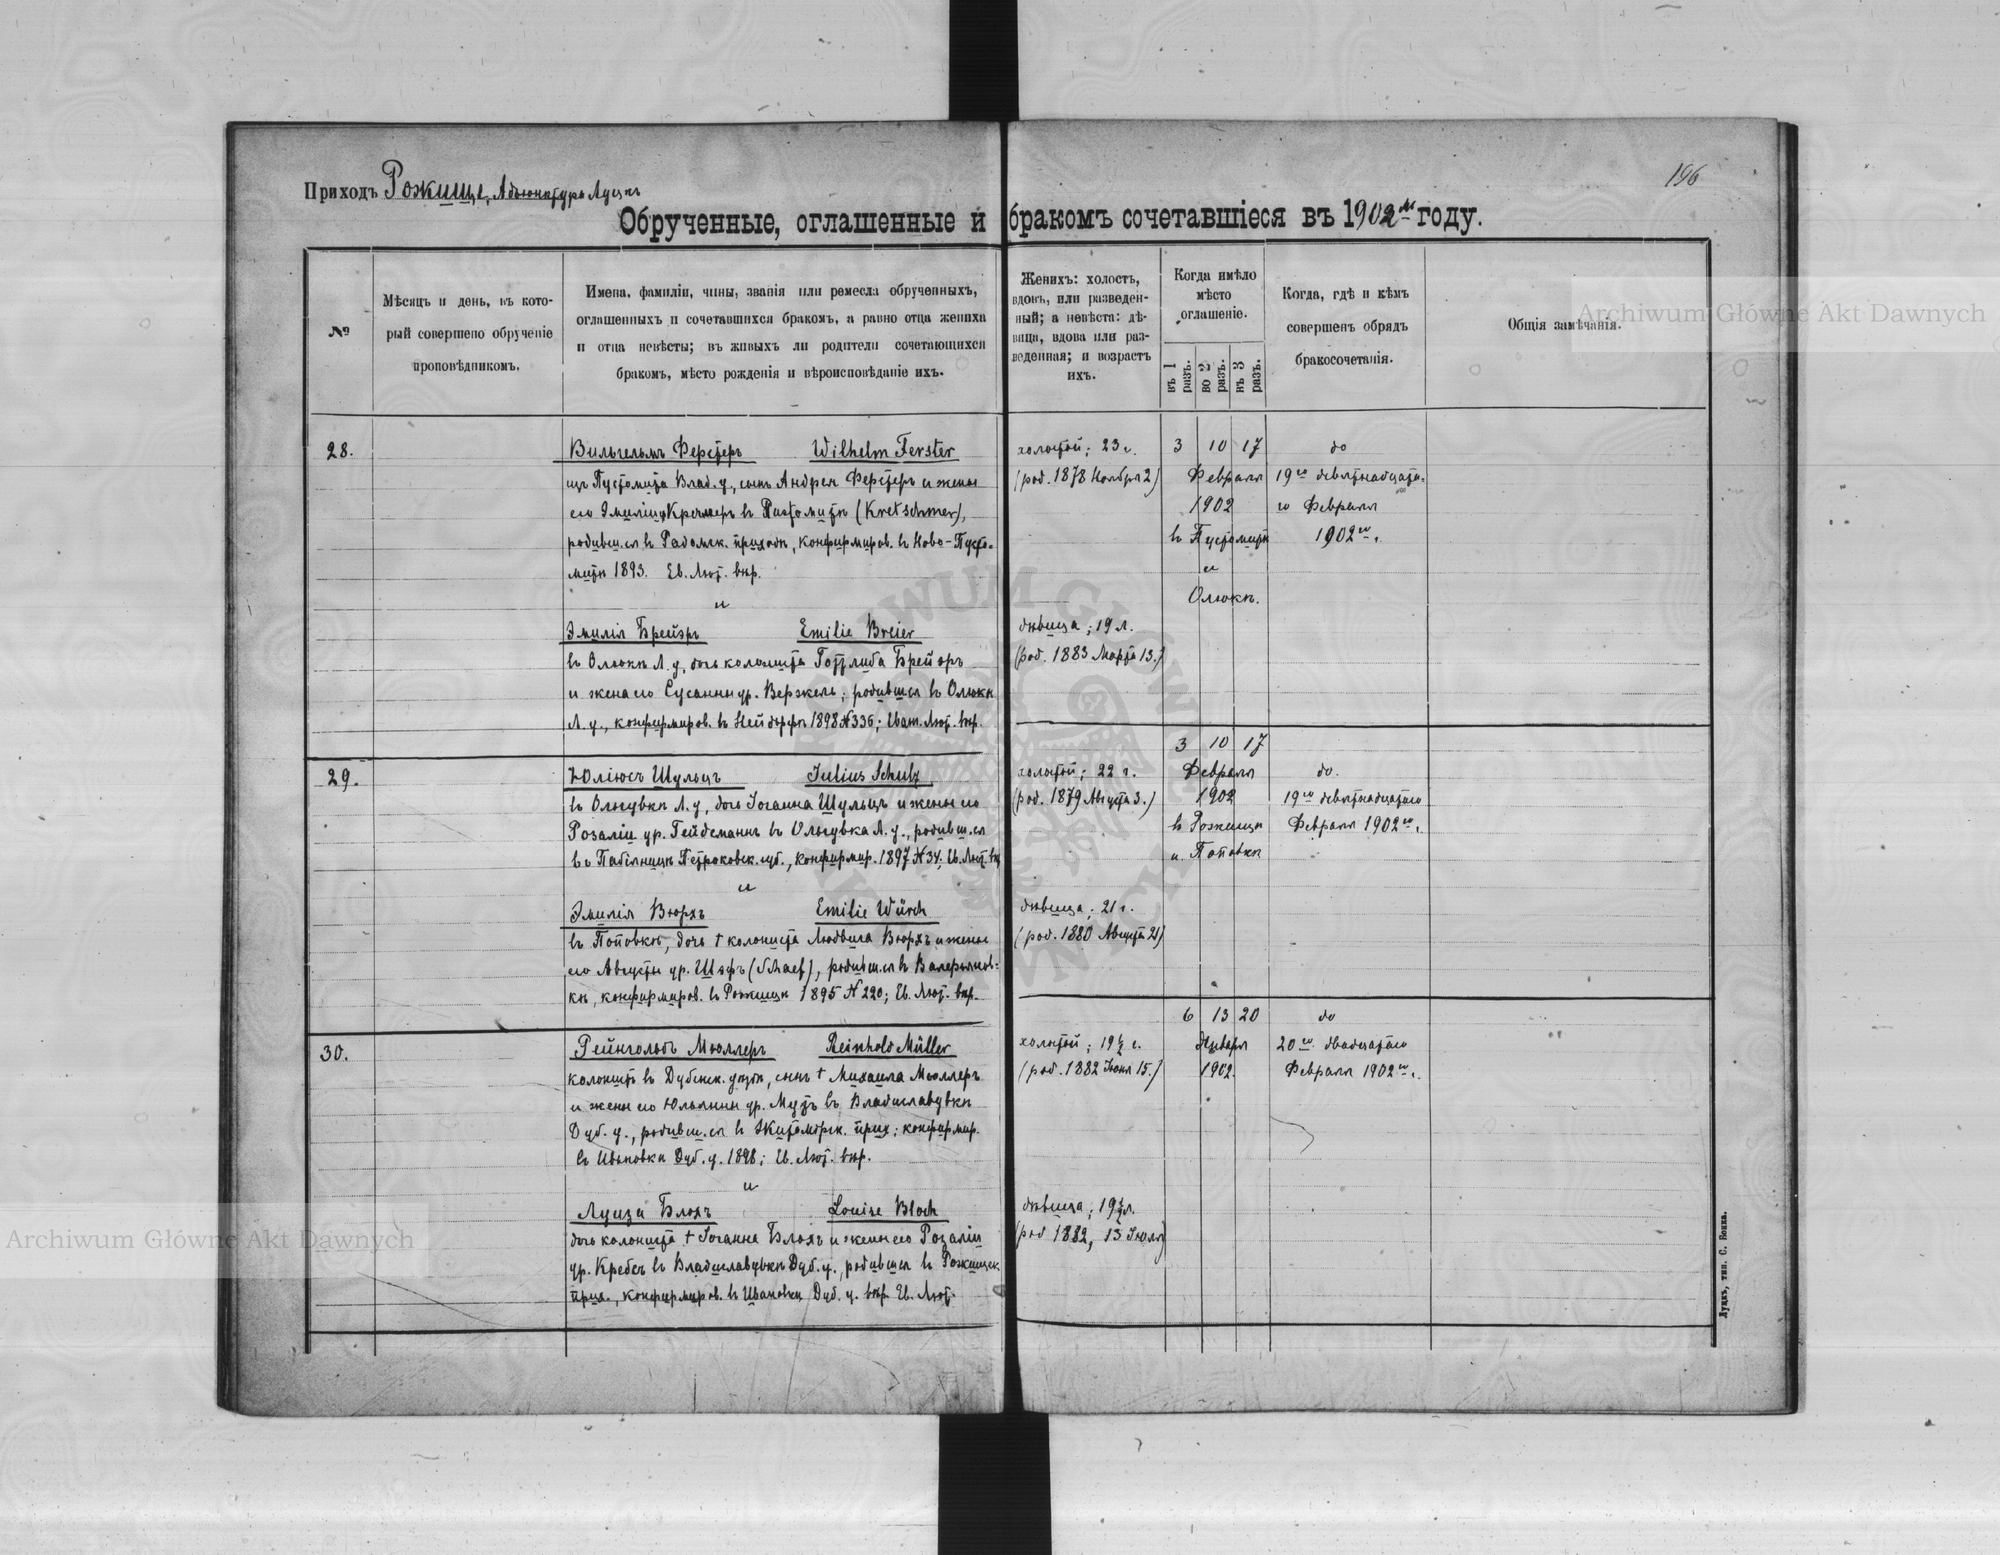 196
Приходъ Рожище, Адъюнктура Луцкъ
Обрученные, оглашенные и бракомъ сочетавшіеся въ 1902 м году.
№
Мѣсяцъ и день, въ кото-
рый совершено обрученіе
проповѣдникомъ.
Имена, фамиліи, чины, званія или ремесла обрученныхъ,
оглашенныхъ и сочетавшихся бракомъ, а равно отца жениха
и отца невѣсты; въ живыхъ ли родители сочетающихся
бракомъ, мѣсто рожденія и вѣроисповѣданіе ихъ.
Женихъ: холостъ,
вдовъ, или разведен-
ный; а невѣста: дѣ-
вица, вдова или раз-
веденная; и возрастъ
ихъ.
Когда имѣло
мѣсто
оглашеніе.
въ 1 разъ.
во 2 разъ.
въ 3 разъ.
Когда, гдѣ и кѣмъ
совершенъ обрядъ
бракосочетанія.
Общія замѣчанія.
28.
Вильгельмъ Ферстеръ Wilhelm Ferster
изъ Пустомита Влад. у., сынъ Андрея Ферстеръ и жены
его Эмиліи Кречмеръ въ Пустомитѣ (Kretschmer),
родивш.ся въ Радомск. приходѣ, конфирмиров. въ Ново-Пусто-
митѣ 1893. Ев. Лют. вѣр.
и
Эмилія Брейэръ Emilie Breier
въ Олюкѣ Л. у., дочь колониста Готтлиба Брейэръ
и жена его Сусанны ур. Верхель; родившся въ Олюкѣ
Л. у., конфирмиров. въ Нейдорфѣ 1898 № 336; Еван. Лют. вѣр.
холостой; 23 г.
(род. 1878 Ноября 2)
дѣвица; 19 л.
(род. 1883 Марта 13.)
3 10 17
Февраля
1902
въ Пустомитѣ
и
Олюкѣ.
до
19го девятнадцата-
го Февраля
1902го.
29.
Юліюсъ Шульцъ Julius Schulz
въ Ольгувкѣ Л. у, Іоганна Шульцъ и жены его
Розаліи ур. Гейдеманъ въ Ольгувка Л. у., родивш.ся
въ Пабіяницѣ Петроковск. губ., конфирмир. 1897 № 34; Ев. Лют. вѣр
и
Эмилія Вюрхъ Emilie Würch
въ Поповкѣ, дочь † колониста Людвига Вюрхъ и жены
его Августы ур. Шефъ (Schaef), родивш.ся въ Валерьянов-
кѣ, конфирмиров. въ Рожищѣ 1895 № 220; Ев. Лют. вѣр.
холостой; 22 г.
(род. 1879 Августа 3.)
дѣвица; 21 г.
(род. 1880 Августа 21)
3 10 17
Февраля
1902
въ Рожищѣ
и Поповкѣ
до.
19го девятнадцатаго
Февраля 1902го.
30.
Рейнгольдъ Мюллеръ Reinhold Müller
колонистъ въ Дубенск. уѣздѣ, сынъ † Михаила Мюллеръ
и жены его Юльянны ур. Мутъ въ Владиславувкѣ
Дуб. у., родивш.ся въ Житомірск. прих; конфирмир.
въ Ивановкѣ Дуб. у. 1898; Ев. Лют. вѣр.
и
Луиза Блохъ Louise Bloch
дочь колониста † Іоганна Блохъ и жены его Розаліи
ур. Кребсъ въ Владиславувкѣ Дуб. у., родившся въ Рожищск.
прих., конфирмиров. въ Ивановкѣ Дуб. у. вѣр Ев. Лют.
холостой; 19½ г.
(род. 1882 Іюня 15.)
дѣвица; 19½ л.
(род 1882, 13 Іюля)
6 13 20
Января
1902.
до
20го двадцатаго
Февраля 1902го.
Луцкъ, тип. С. Бонка.
Archiwum Główne Akt Dawnych
Archiwum Główne Akt Dawnych